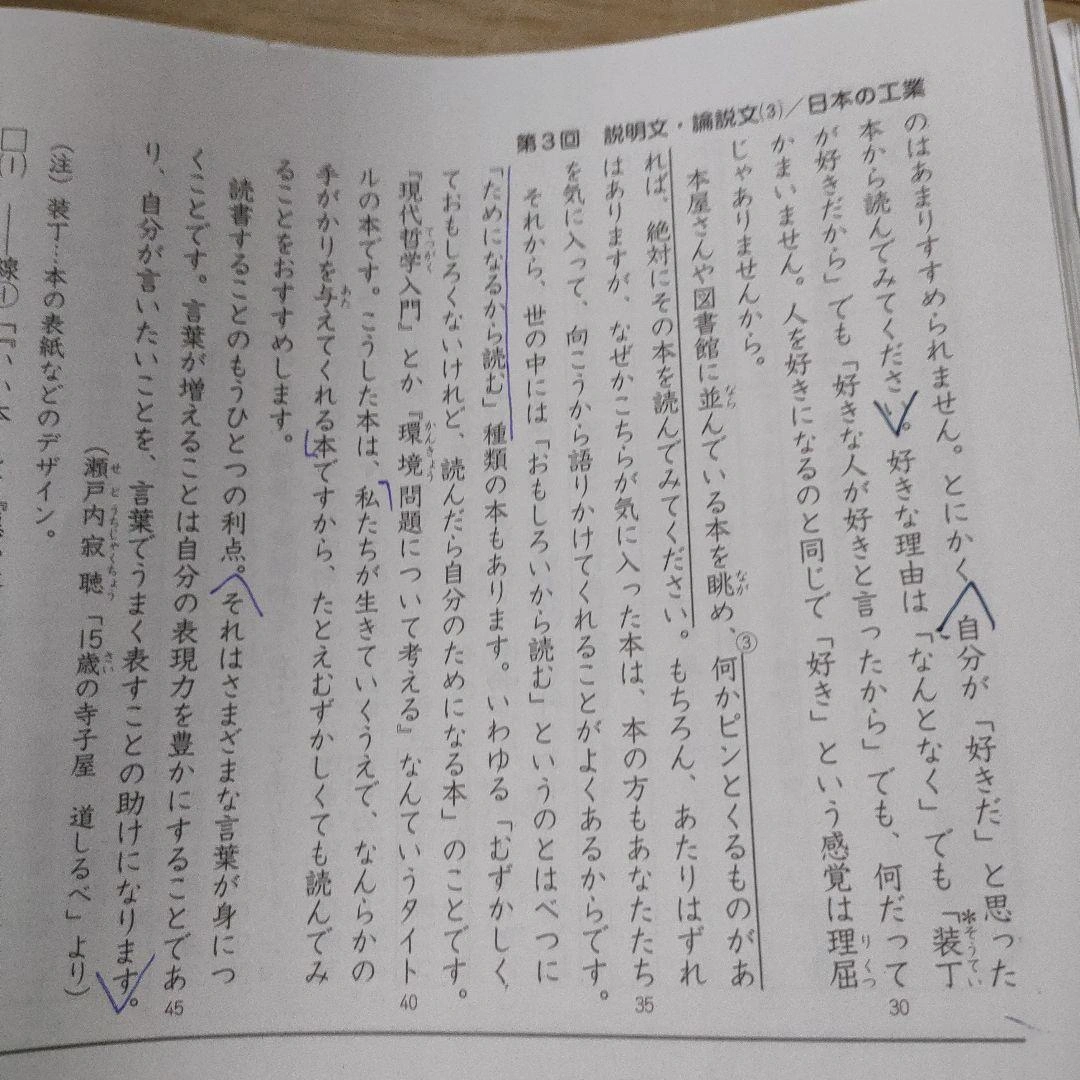 第3回　説明文・論説文(3)／日本の工業
のはあまりすすめられません。とにかく、自分が「好きだ」と思った
本から読んでみてください。好きな理由は「なんとなく」でも「装丁
が好きだから」でも「好きな人が好きと言ったから」でも、何だって
かまいません。人を好きになるのと同じで「好き」という感覚は理屈
じゃありませんから。
本屋さんや図書館に並んでいる本を眺め、③何かピンとくるものがあ
れば、絶対にその本を読んでみてください。もちろん、あたりはずれ
はありますが、なぜかこちらが気に入った本は、本の方もあなたたち
を気に入って、向こうから語りかけてくれることがよくあるからです。
それから、世の中には「おもしろいから読む」というのとはべつに
「ためになるから読む」種類の本もあります。いわゆる「むずかしく
ておもしろくないけれど、読んだら自分のためになる本」のことです。
『現代哲学入門』とか『環境問題について考える』なんていうタイト
ルの本です。こうした本は、私たちが生きていくうえで、なんらかの
手がかりを与えてくれる本ですから、たとえむずかしくても読んでみ
ることをおすすめします。
読書することのもうひとつの利点。それはさまざまな言葉が身につ
くことです。言葉が増えることは自分の表現力を豊かにすることであ
り、自分が言いたいことを、言葉でうまく表すことの助けになります。
（瀬戸内寂聴「15歳の寺子屋　道しるべ」より）
（注）装丁…本の表紙などのデザイン。
30
35
40
45